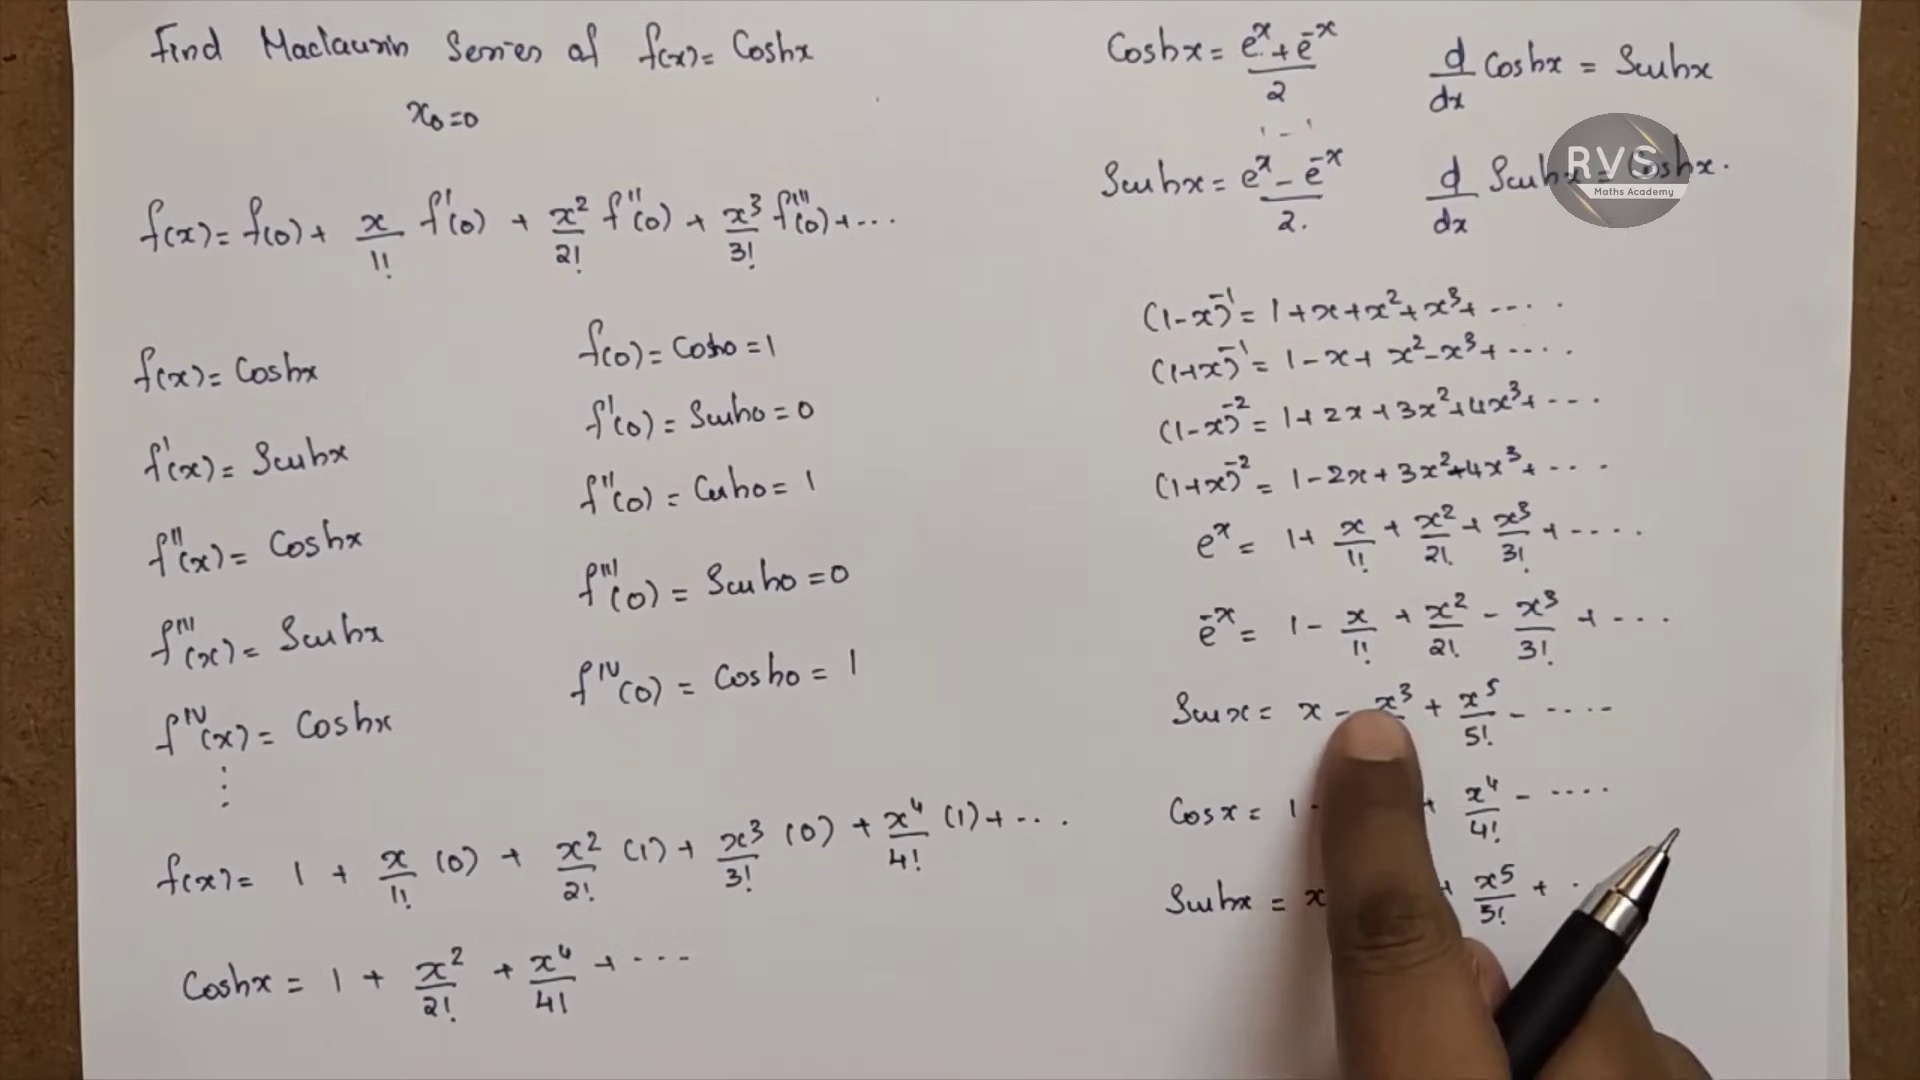 Find Maclaurin Series of f(x) = Coshx
x₀=0
f(x) = f(0) + x/1! f'(0) + x²/2! f''(0) + x³/3! f'''(0) + ...
f(x) = Coshx
f(0) = Cosh0 = 1
f'(x) = Sinhx
f'(0) = Sinh0 = 0
f''(x) = Coshx
f''(0) = Cosh0 = 1
f'''(x) = Sinhx
f'''(0) = Sinh0 = 0
f^IV(x) = Coshx
f^IV(0) = Cosh0 = 1
⋮
f(x) = 1 + x/1! (0) + x²/2! (1) + x³/3! (0) + x⁴/4! (1) + ...
Coshx = 1 + x²/2! + x⁴/4! + ...
Coshx = (e^x + e^-x)/2
d/dx Coshx = Sinhx
Sinhx = (e^x - e^-x)/2.
d/dx Sinhx = Coshx.
RVS
Maths Academy
(1-x)^-1 = 1+x+x²+x³+ ....
(1+x)^-1 = 1-x+x²-x³+ ....
(1-x)^-2 = 1+2x+3x²+4x³+ ...
(1+x)^-2 = 1-2x+3x²-4x³+ ...
e^x = 1 + x/1! + x²/2! + x³/3! + ....
e^-x = 1 - x/1! + x²/2! - x³/3! + ...
Sinx = x - x³ + x⁵/5! - ....
Cosx = 1 - + x⁴/4! - ....
Sinhx = x + x⁵/5! + .